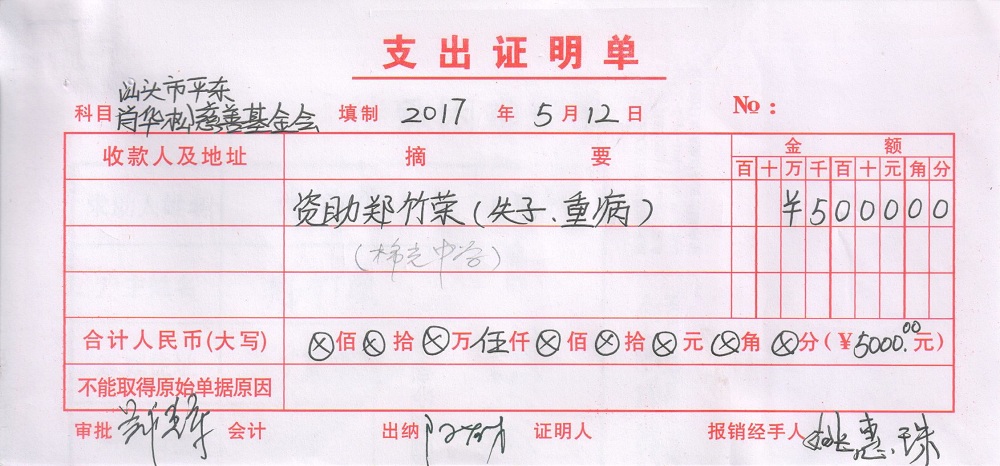 支出证明单
汕头市平东
科目 肖华松慈善基金会 填制 2017 年 5 月 12 日 No:
收款人及地址 摘要 金额
百 十 万 千 百 十 元 角 分
资助郑竹荣(失子、重病) ¥500000
合计人民币(大写) ⊗佰⊗拾⊗万伍仟⊗佰⊗拾⊗元⊗角⊗分(¥5000.00元)
不能取得原始单据原因
审批 会计 出纳 证明人 报销经手人 姚惠珠